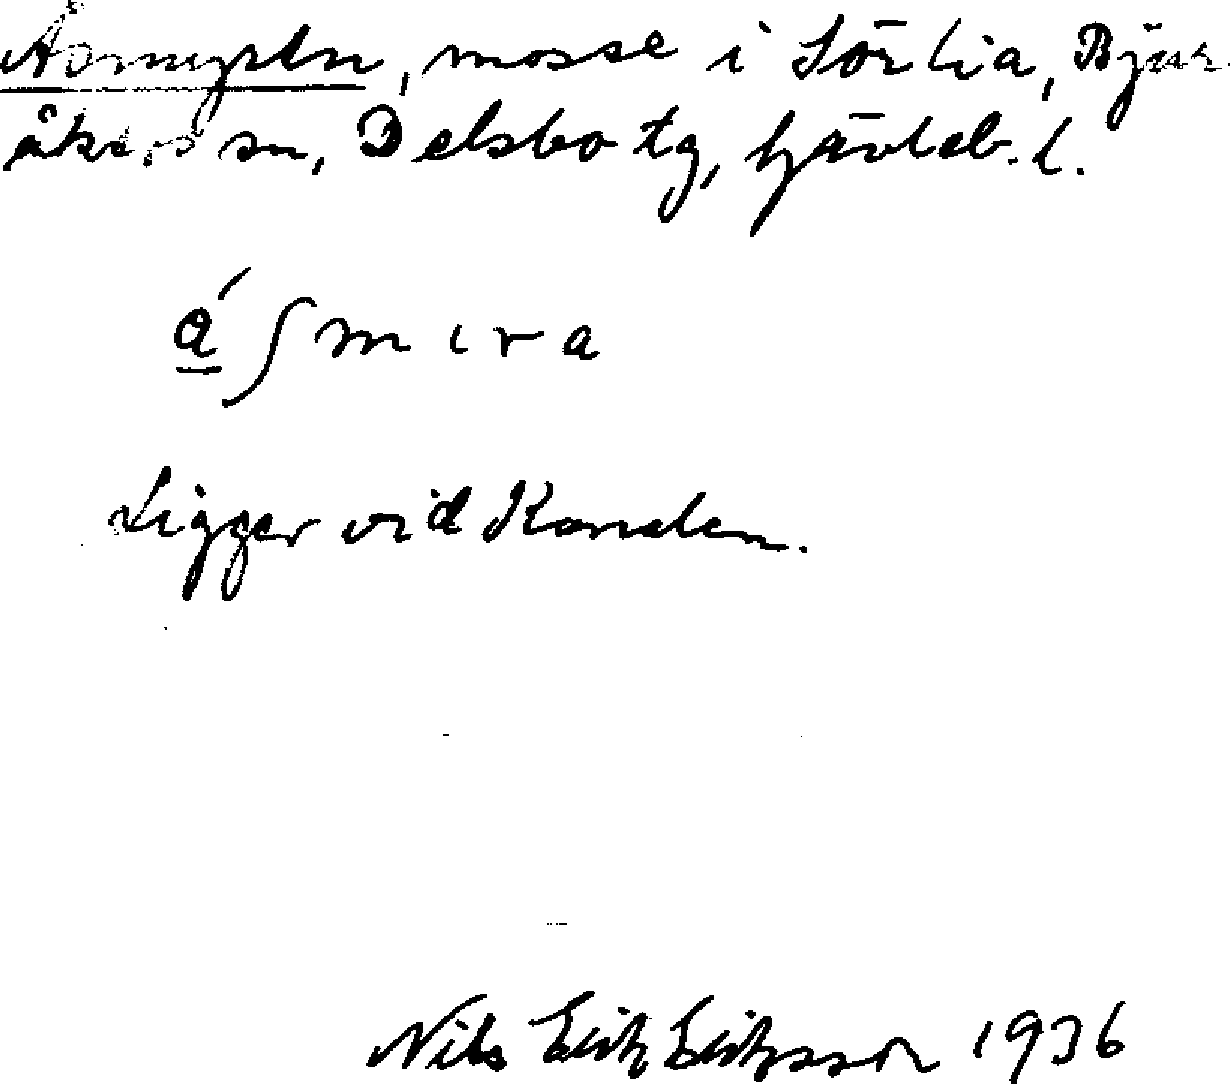 mosse i Sörlia, Bjur-
åkers sn, Delsbo tg, Gävleb. l.
á ʃ m ɩ r a
Ligger vid Kanalen.
Nils Erik Eriksson 1936